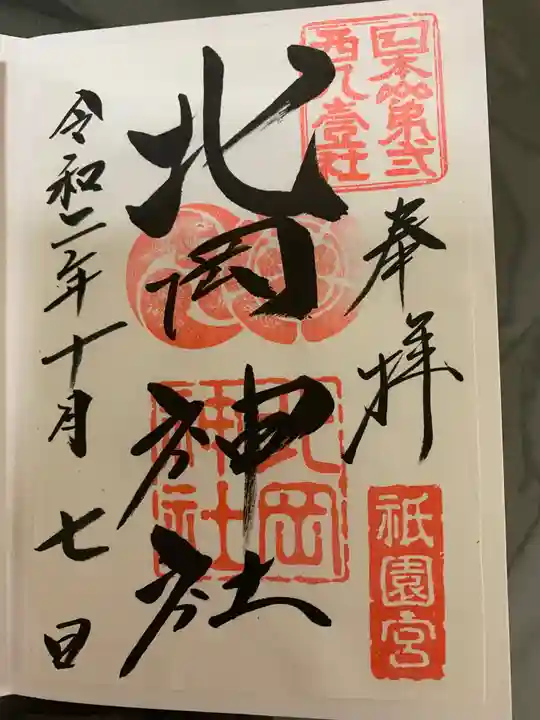 日本第弐
壹社
奉拝
祇園宮
北岡神社
北岡
神社
令和二年十月七日